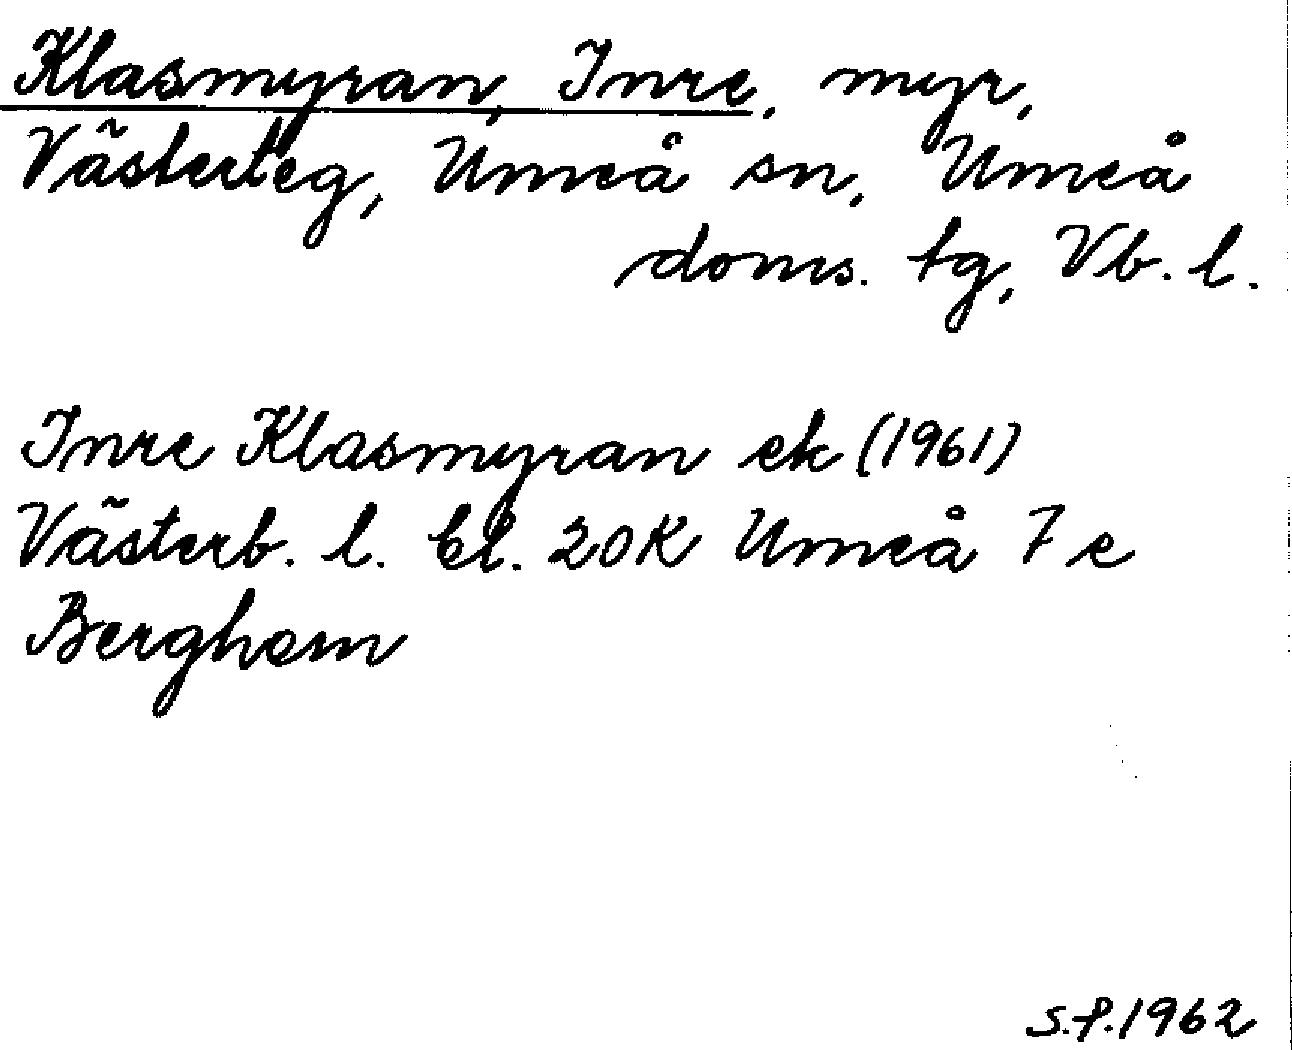 Klasmyran, Inre, myr,
Västerteg, Umeå sn, Umeå
doms. tg, Vb. l.
Inre Klasmyran ek (1961)
Västerb. l. bl. 20K Umeå 7e
Berghem
S.F. 1962